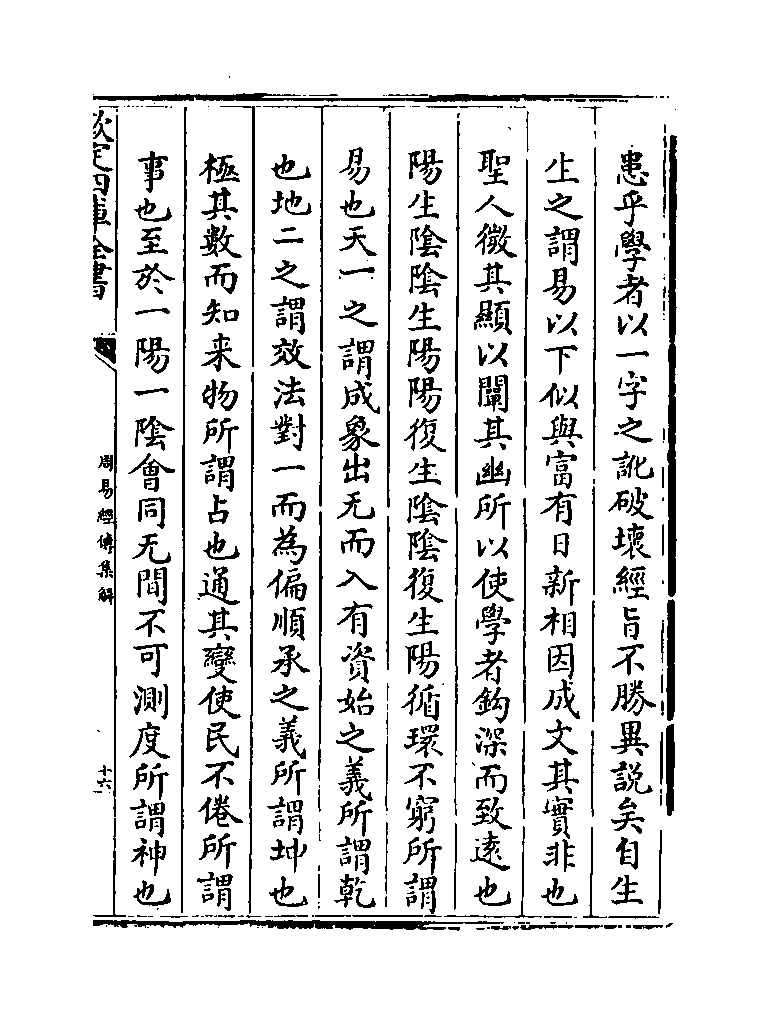 患乎學者以一字之訛破壞經旨不勝異說矣自生
生之謂易以下似與富有日新相因成文其實非也
聖人微其顯以闡其幽所以使學者鈎深而致遠也
陽生隂隂生陽陽復生隂隂復生陽循環不窮所謂
易也天一之謂成象出无而入有資始之義所謂乾
也地二之謂效法對一而為偏順承之義所謂坤也
極其數而知来物所謂占也通其變使民不倦所謂
事也至於一陽一隂會同无間不可測度所謂神也
欽定四庫全書
周易經傳集解
十六